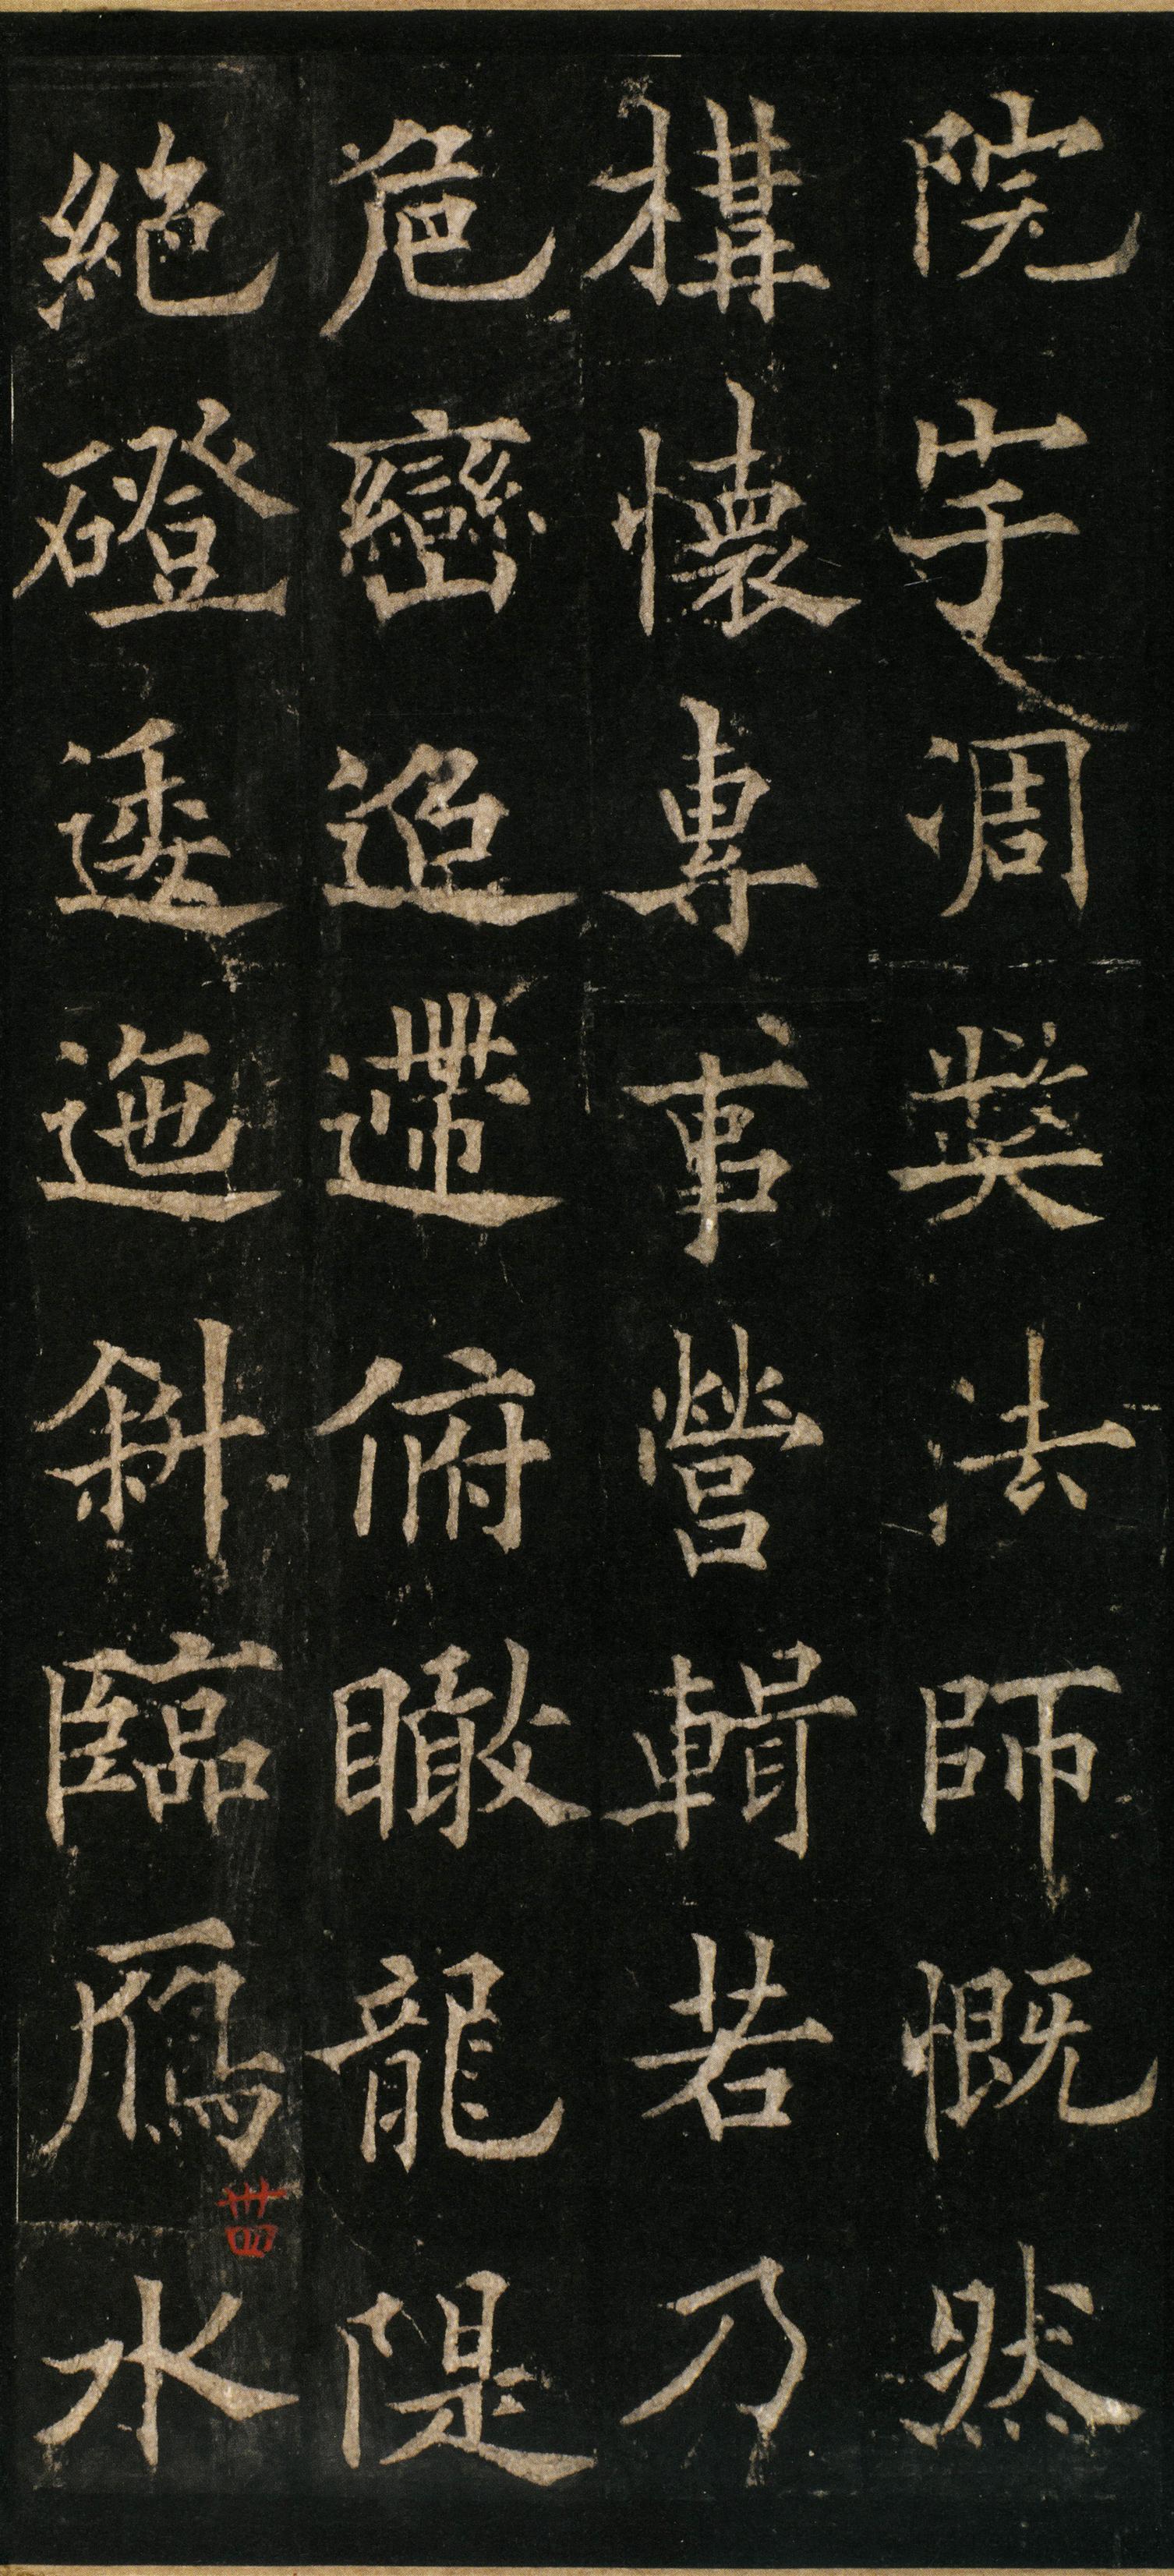 院宇凋弊法師慨然
構懷專事營輯若乃
危巒迢遰俯瞰龍隄
絕磴逶迤斜臨鴈水